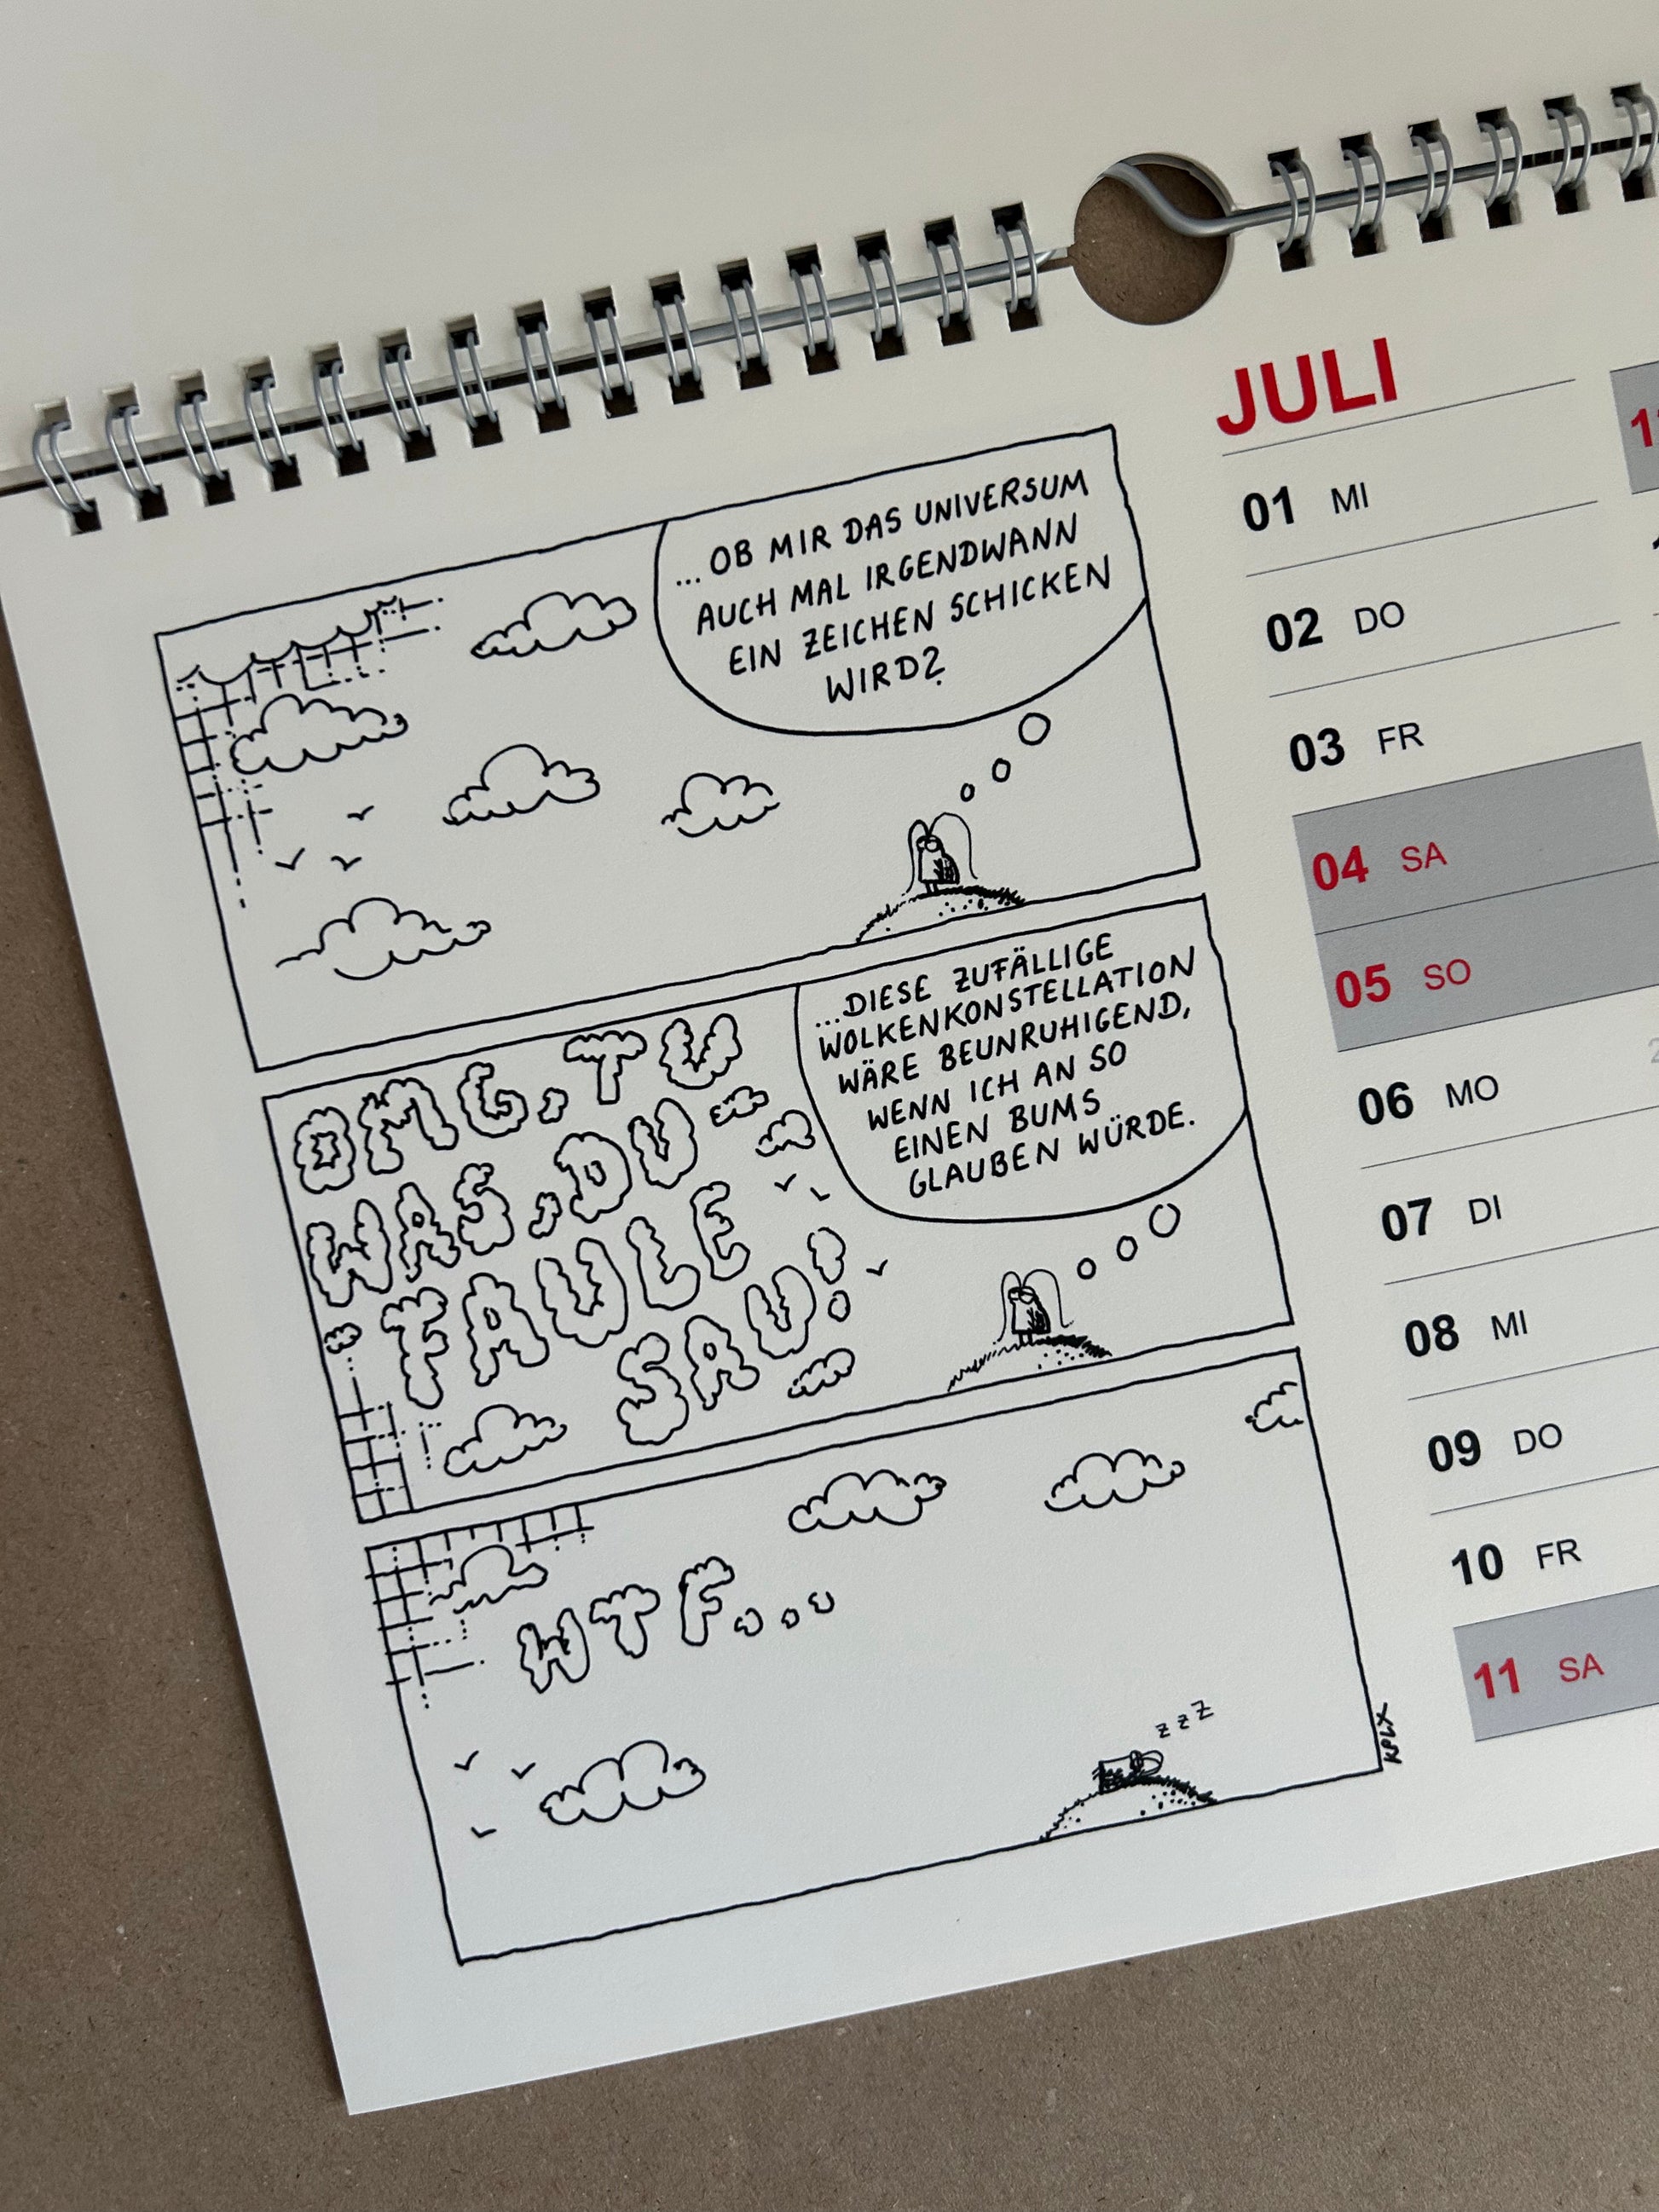 ...OB MIR DAS UNIVERSUM
AUCH MAL IRGENDWANN
EIN ZEICHEN SCHICKEN
WIRD?
...DIESE ZUFÄLLIGE
WOLKENKONSTELLATION
WÄRE BEUNRUHIGEND,
WENN ICH AN SO
EINEN BUMS
GLAUBEN WÜRDE.
OMG, TU
WAS, DU
FAULE
SAU!
WTF...
z z z
KPLX
JULI
01 MI
02 DO
03 FR
04 SA
05 SO
06 MO
07 DI
08 MI
09 DO
10 FR
11 SA